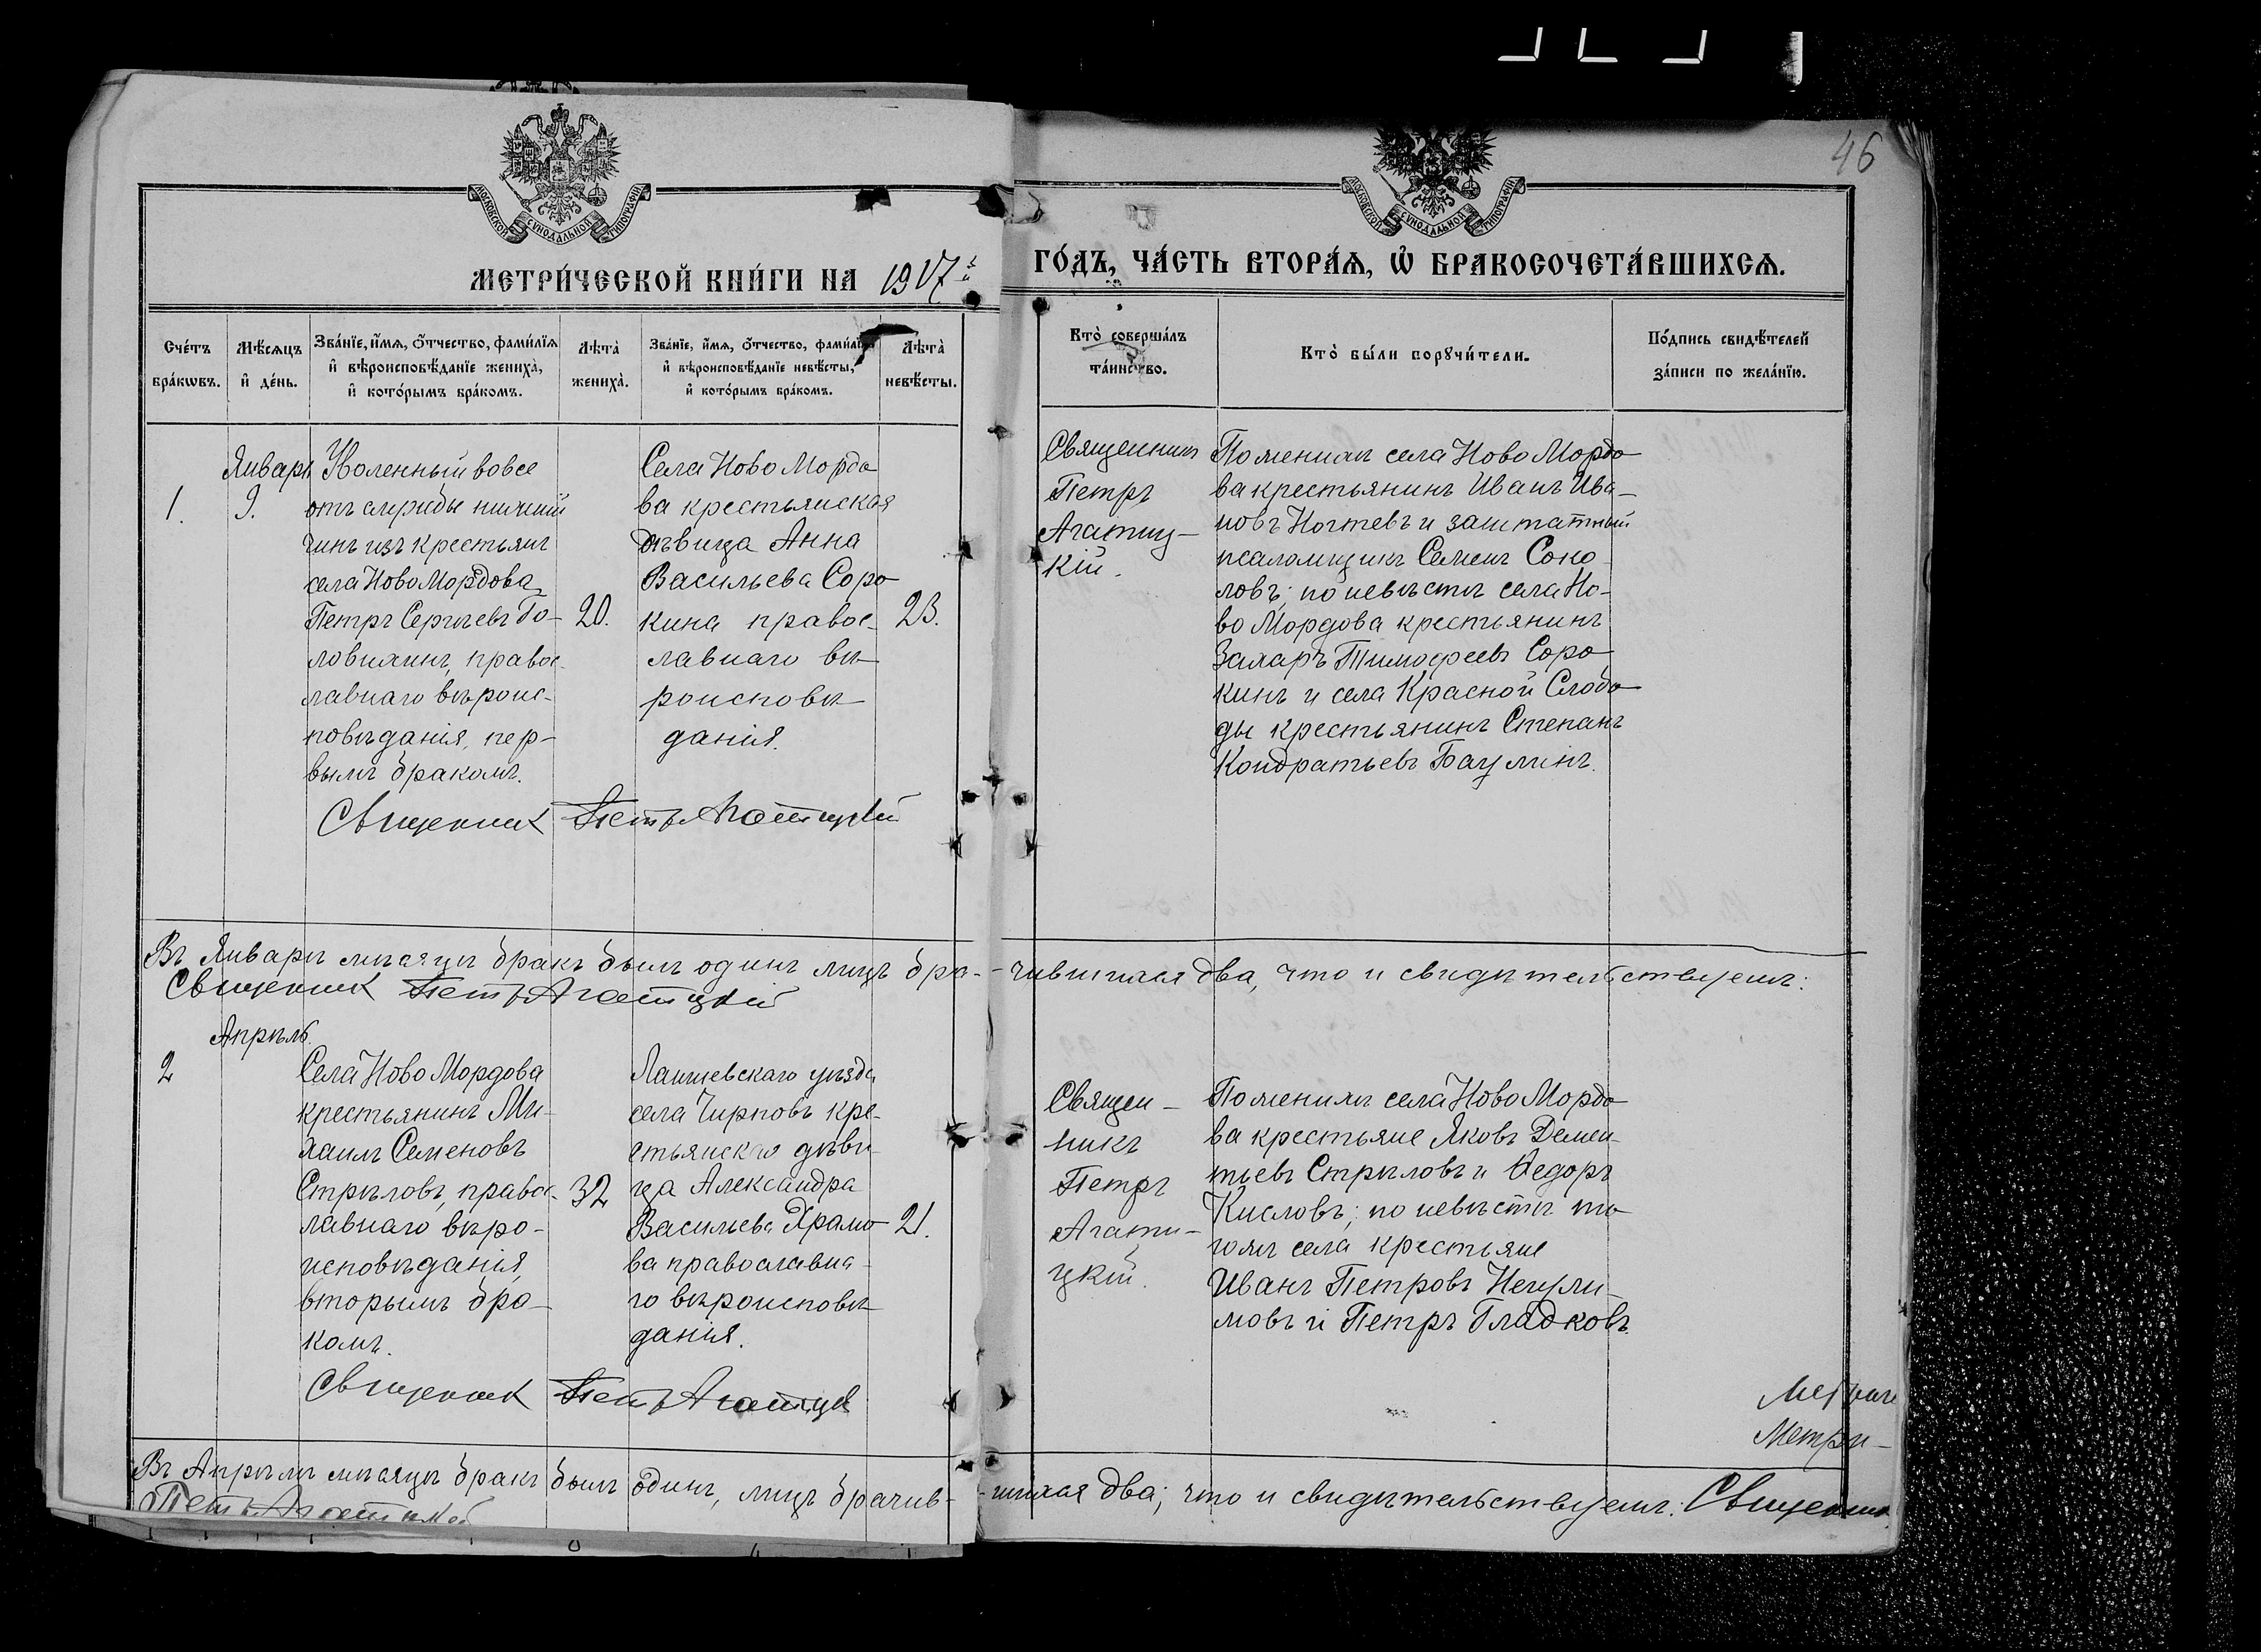 46
МОСКОВСКОЙ СѴНОДАЛЬНОЙ ТИПОГРАФІИ
МОСКОВСКОЙ СѴНОДАЛЬНОЙ ТИПОГРАФІИ
МЕТРИ́ЧЕСКОЙ КНИ́ГИ НА 1917 й
ГО́ДЪ, ЧА́СТЬ ВТОРА́Ѧ, Ѡ҆ БРАКОСОЧЕТА́ВШИХСѦ.
Сче́тъ
бра́кѡвъ.
Мѣ́сѧцъ
и҆ де́нь.
Зва́нїе, и҆́мѧ, о҆́тчество, фами́лїѧ
и҆ вѣроисповѣ́данїе жениха̀,
и҆ кото́рымъ бра́комъ.
Лѣта̀
жениха̀.
Зва́нїе, и҆́мѧ, о҆́тчество, фами́лїѧ
и҆ вѣроисповѣ́данїе невѣ́сты,
и҆ кото́рымъ бра́комъ.
Лѣта̀
невѣ́сты.
Кто̀ соверша́лъ
та́инство.
Кто̀ бы́ли порꙋчи́тели.
По́дпись свидѣ́телей
за́писи по жела́нїю.
1.
Январь
9.
Уволенный вовсе
отъ службы нижній
чинъ изъ крестьянъ
села Ново Мордова
Петръ Сергѣевъ Го-
ловихинъ, правос-
лавнаго вѣроис-
повѣданія, пер-
вымъ бракомъ.
20.
Села Ново Мордо
ва крестьянская
дѣвица Анна
Васильева Соро
кина правос-
лавнаго вѣ-
роисповѣ-
данія.
23.
Священникъ Петръ Агатицкій
Священникъ
Петръ
Агатиц-
кій.
По женихѣ села Ново Мордо
ва крестьянинъ Иванъ Ива-
новъ Ногтевъ и заштатный
псаломщикъ Семенъ Соко
ловъ; по невѣстѣ села Но-
во Мордова крестьянинъ
Захаръ Тимофеевъ Соро
кинъ и села Красной Слобо
ды крестьянинъ Степанъ
Кондратьевъ Баулинъ.
Въ Январѣ мѣсяцѣ бракъ былъ одинъ лицъ бра-чившихся два, что и свидѣтельствуемъ:
Священникъ Петръ Агатицкій
Апрѣль.
2
Села Ново Мордова
крестьянинъ Ми-
хаилъ Семеновъ
Стрѣловъ, правос-
лавнаго вѣро-
исповѣданія,
вторымъ бра-
комъ.
32
Лаишевскаго уѣзда
села Чирповъ кре-
стьянская дѣви-
ца Александра
Васильева Храмо
ва православна-
го вѣроисповѣ-
данія.
21.
Священникъ Петръ Агатицкій
Священ-
никъ
Петръ
Агати-
цкій.
По женихѣ села Ново Мордо
ва крестьяне Яковъ Демен-
тьевъ Стрѣловъ и Ѳедоръ
Кисловъ; по невѣстѣ то
гожъ села крестьяне
Иванъ Петровъ
и Петръ Гладковъ.
Метри-
Въ Апрѣлѣ мѣсяцѣ бракъ былъ одинъ, лицъ брачив--шихся два; что и свидѣтельствуемъ: Священникъ
Петръ Агатицкій